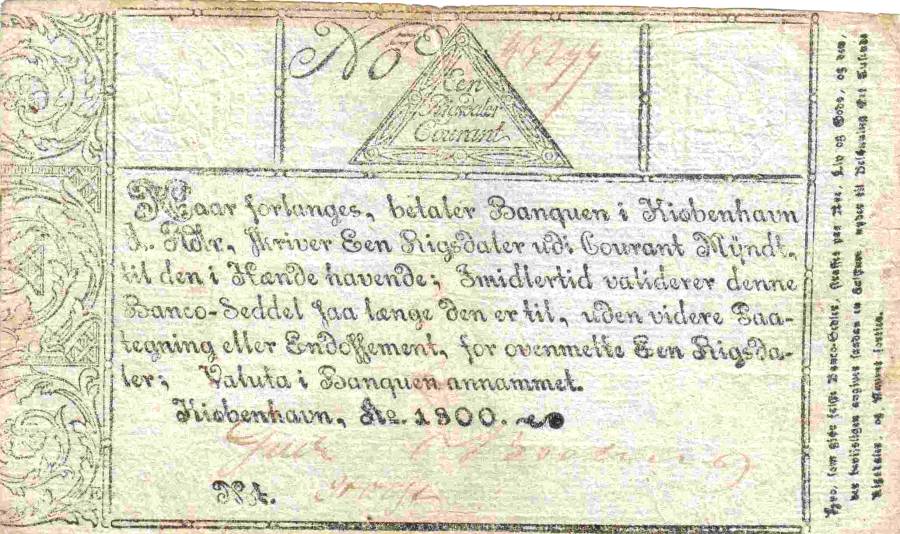 No
Een
Rigsdaler
Courant
Naar forlanges, betaler Banquen i Kiøbenhavn
1. Rdlr, skriver Een Rigsdaler udi Courant Mÿndt,
til den i Hænde havende; Imidlertid validerer denne
Banco-Seddel saa længe den er til, uden videre Paa-
tegning eller Endossement, for ovenmelte Een Rigsda-
ler; Valuta i Banquen annammet.
Kiøbenhavn, Ao. 1800.
Hvo, som giør falske Banco-Sedler, straffes paa Ære, Liv og Gods, og den,
der beviisligen angiver saadan en Falskner, nyder til Belønning Eet Tusinde
Rigsdaler, og Navnet forties.